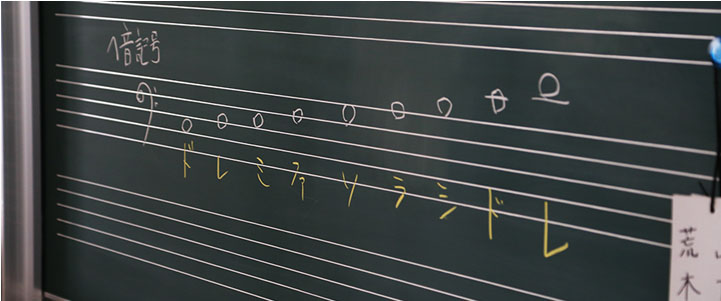 ヘ音記号
ドレミファソラシドレ
荒木